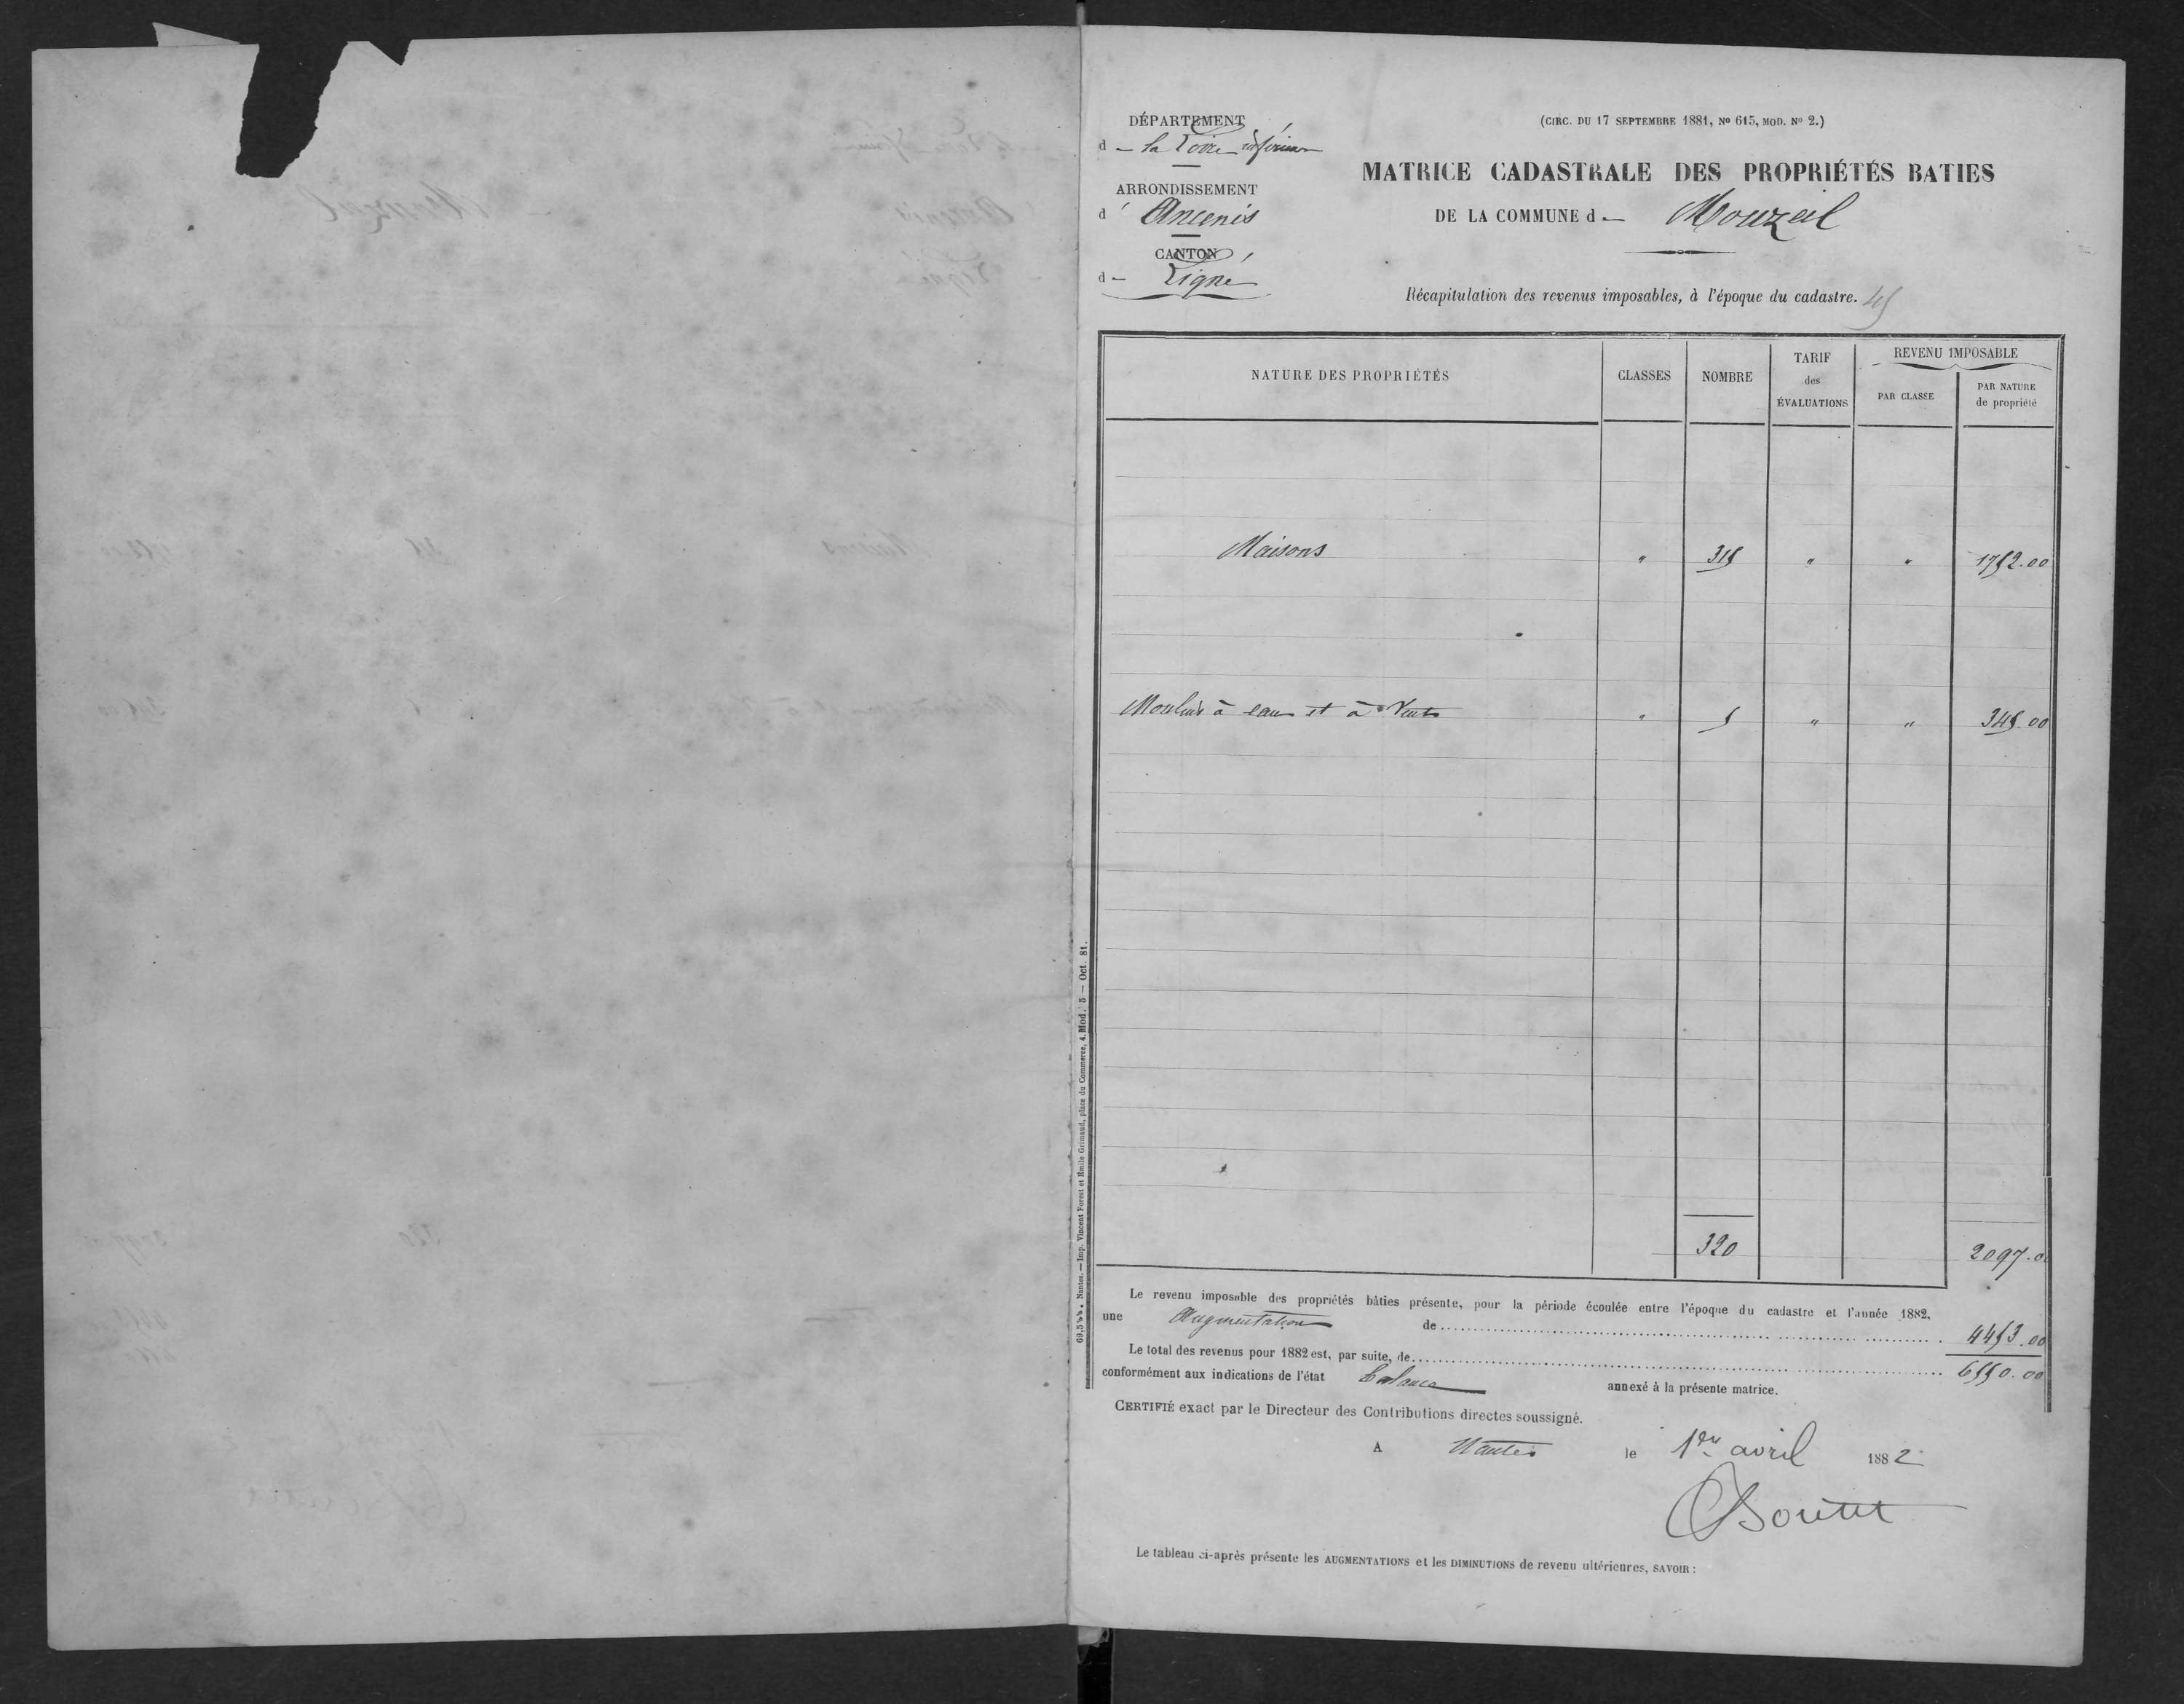 DÉPARTEMENT
d la Loire inférieure
ARRONDISSEMENT
d' Ancenis
CANTON
d Ligné
(CIRC. DU 17 SEPTEMBRE 1881, No 615, MOD. No 2.)
MATRICE CADASTRALE DES PROPRIÉTÉS BATIES
DE LA COMMUNE d Mouzeil
Récapitulation des revenus imposables, à l'époque du cadastre.
NATURE DES PROPRIÉTÉS CLASSES NOMBRE TARIF des ÉVALUATIONS REVENU IMPOSABLE
PAR CLASSE PAR NATURE de propriété
Maisons " 315 " " 1752.00
Moulins à eau et à Vents " 5 " " 345.00
320 2097.0
Le revenu imposable des propriétés bâties présente, pour la période écoulée entre l'époque du cadastre et l'année 1882,
une Augmentation de 4453.00
Le total des revenus pour 1882 est, par suite, de 6550.00
conformément aux indications de l'état balance annexé à la présente matrice.
CERTIFIÉ exact par le Directeur des Contributions directes soussigné.
A Nantes le 1er avril 1882
Le tableau ci-après présente les AUGMENTATIONS et les DIMINUTIONS de revenu ultérieures, SAVOIR :
Nantes. — Imp. Vincent Forest et Émile Grimaud, place du Commerce, 4. Mod. 5 — Oct. 81.